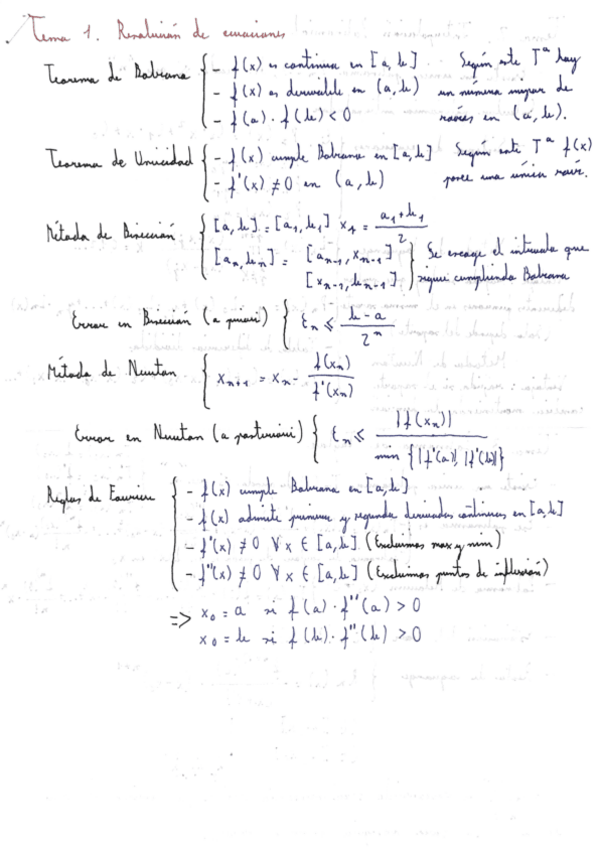 Tema 1. Resolución de ecuaciones
Teorema de Bolzano { - f(x) es continua en [a, b] Según este Tª hay
- f(x) es derivable en (a, b) un número impar de
- f(a) · f(b) < 0 raíces en (a, b).
Teorema de Unicidad { - f(x) cumple Bolzano en [a, b] Según este Tª f(x)
- f'(x) ≠ 0 en (a, b) posee una única raíz.
Método de Bisección { [a, b] = [a₁, b₁] x₁ = (a₁ + b₁)/2
[aₙ, bₙ] = [aₙ₋₁, xₙ₋₁] } Se escoge el intervalo que
[xₙ₋₁, bₙ₋₁] } sigue cumpliendo Bolzano
Error en Bisección (a priori) { Eₙ ⩽ (b - a)/2ⁿ
Método de Newton { xₙ₊₁ = xₙ - f(xₙ)/f'(xₙ)
Error en Newton (a posteriori) { Eₙ ⩽ |f(xₙ)| / min {|f'(a)|, |f'(b)|}
Reglas de Fourier { - f(x) cumple Bolzano en [a, b]
- f(x) admite primera y segunda derivadas continuas en [a, b]
- f'(x) ≠ 0 ∀ x ∈ [a, b] (Excluimos max y min)
- f''(x) ≠ 0 ∀ x ∈ [a, b] (Excluimos puntos de inflexión)
=> x₀ = a si f(a) · f''(a) > 0
x₀ = b si f(b) · f''(b) > 0